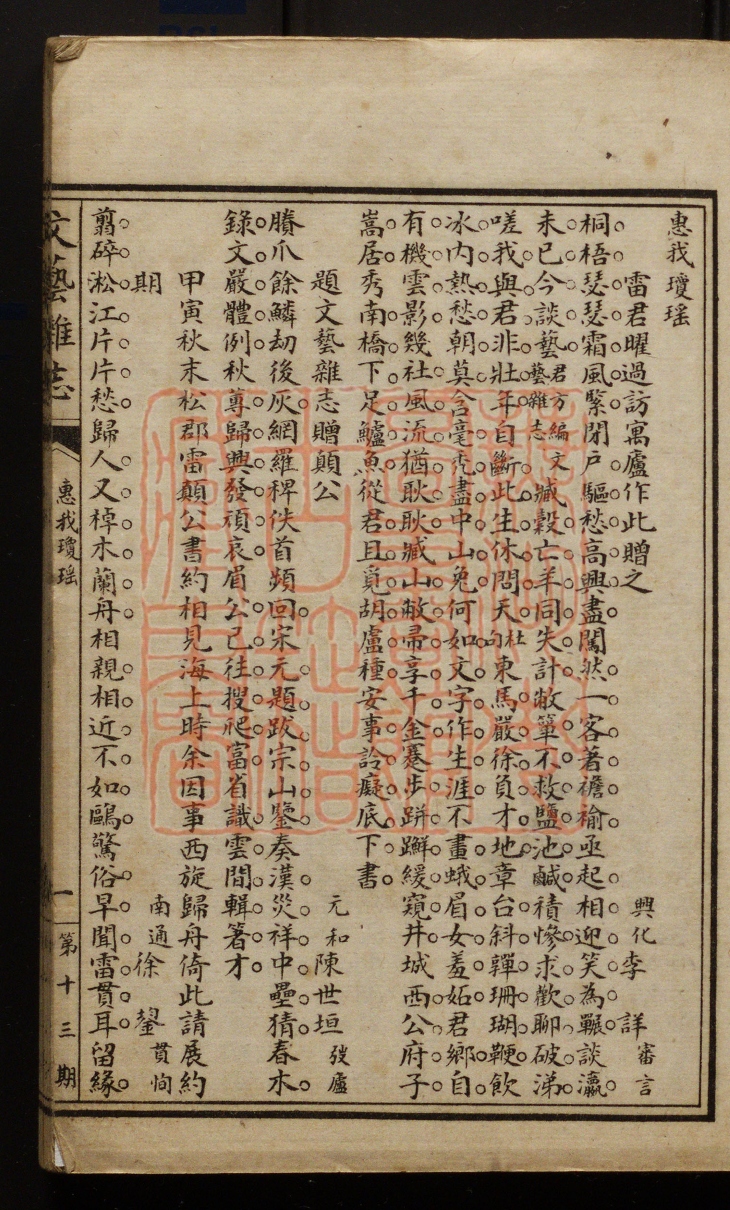 惠我瓊瑤
雷君曜過訪寓廬作此贈之 興化李 詳審言
桐梧瑟瑟霜風緊閉戶驅愁高興盡闖然一客著襜褕亟起相迎笑為囅談瀛
未已今談藝君方編文藝雜志臧穀亡羊同失計敝箄不救鹽池鹹積慘求歡聊破涕
嗟我與君非壯年自斷此生休問天杜句東馬嚴徐負才地章台斜嚲珊瑚鞭飲
冰內熱愁朝莫含毫禿盡中山兔何如文字作生涯不畫蛾眉女羞妬君鄉自
有機雲影幾社風流猶耿耿臧山敝帚享千金蹇步跰𨇤緩窺井城西公府子
嵩居秀南橋下足鱸魚從君且覓胡盧種安事詅癡底下書
題文藝雜志贈顛公 元和陳世垣弢廬
賸爪餘鱗劫後灰網羅稗佚首頻回宋元題跋宗山鑒秦漢災祥中壘猜春木
錄文嚴體例秋蓴歸興發頑哀眉公已往搜爬富省識雲間輯箸才
甲寅秋末松郡雷顛公書約相見海上時余因事西旋歸舟倚此請展約
期 南通徐 鋆貫恂
翦碎淞江片片愁歸人又棹木蘭舟相親相近不如鷗驚俗早聞雷貫耳留緣
文藝雜志 惠我瓊瑤 一 第十三期